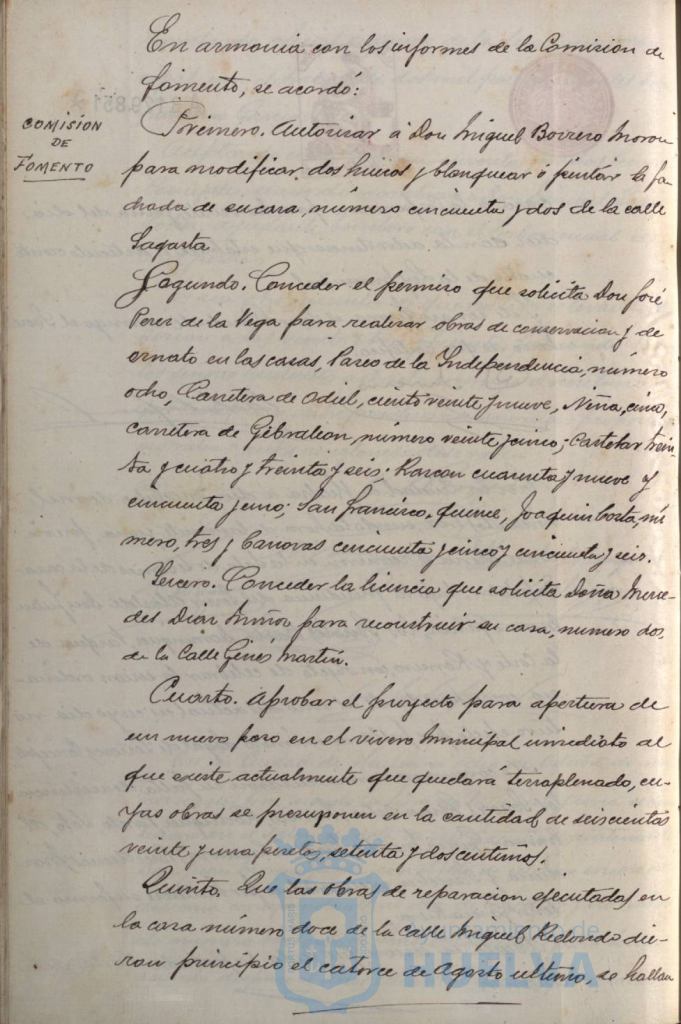 En armonia con los informes de la Comision de
fomento, se acordó:
COMISION
DE
FOMENTO
Primero. Autorizar á Don Miguel Borrero Moron
para modificar dos huecos y blanquear ó pintar la fa-
chada de su casa, número cincuenta y dos de la calle
Sagasta
Segundo. Conceder el permiso que solicita Don José
Perez de la Vega para realizar obras de conservacion y de
ornato en las casas, Paseo de la Independencia, número
ocho, Carretera de Odiel, ciento veinte y nueve, Niña, cinco,
carretera de Gibraleon número veinte y cinco; Castelar trein-
ta y cuatro y treinta y seis; Rascon cuarenta y nueve y
cincuenta y uno; San Francisco, quince, Joaquin Costa, nú-
mero, tres y Canovas cincuenta y cinco y cincuenta y seis.
Tercero. Conceder la licencia que solicita Doña Merce-
des Diaz Muñoz para reconstruir su casa, numero dos,
de la Calle Ginés Martin.
Cuarto. Aprobar el proyecto para apertura de
un nuevo pozo en el vivero Municipal inmediato al
que existe actualmente que quedará terraplenado, cu-
yas obras se presuponen en la cantidad de seiscientas
veinte y una pesetas, setenta y dos centimos.
Quinto. Que las obras de reparacion ejecutadas en
la casa número doce de la calle Miguel Redondo die-
ron principio el catorce de Agosto ultimo, se hallan
HUELVA